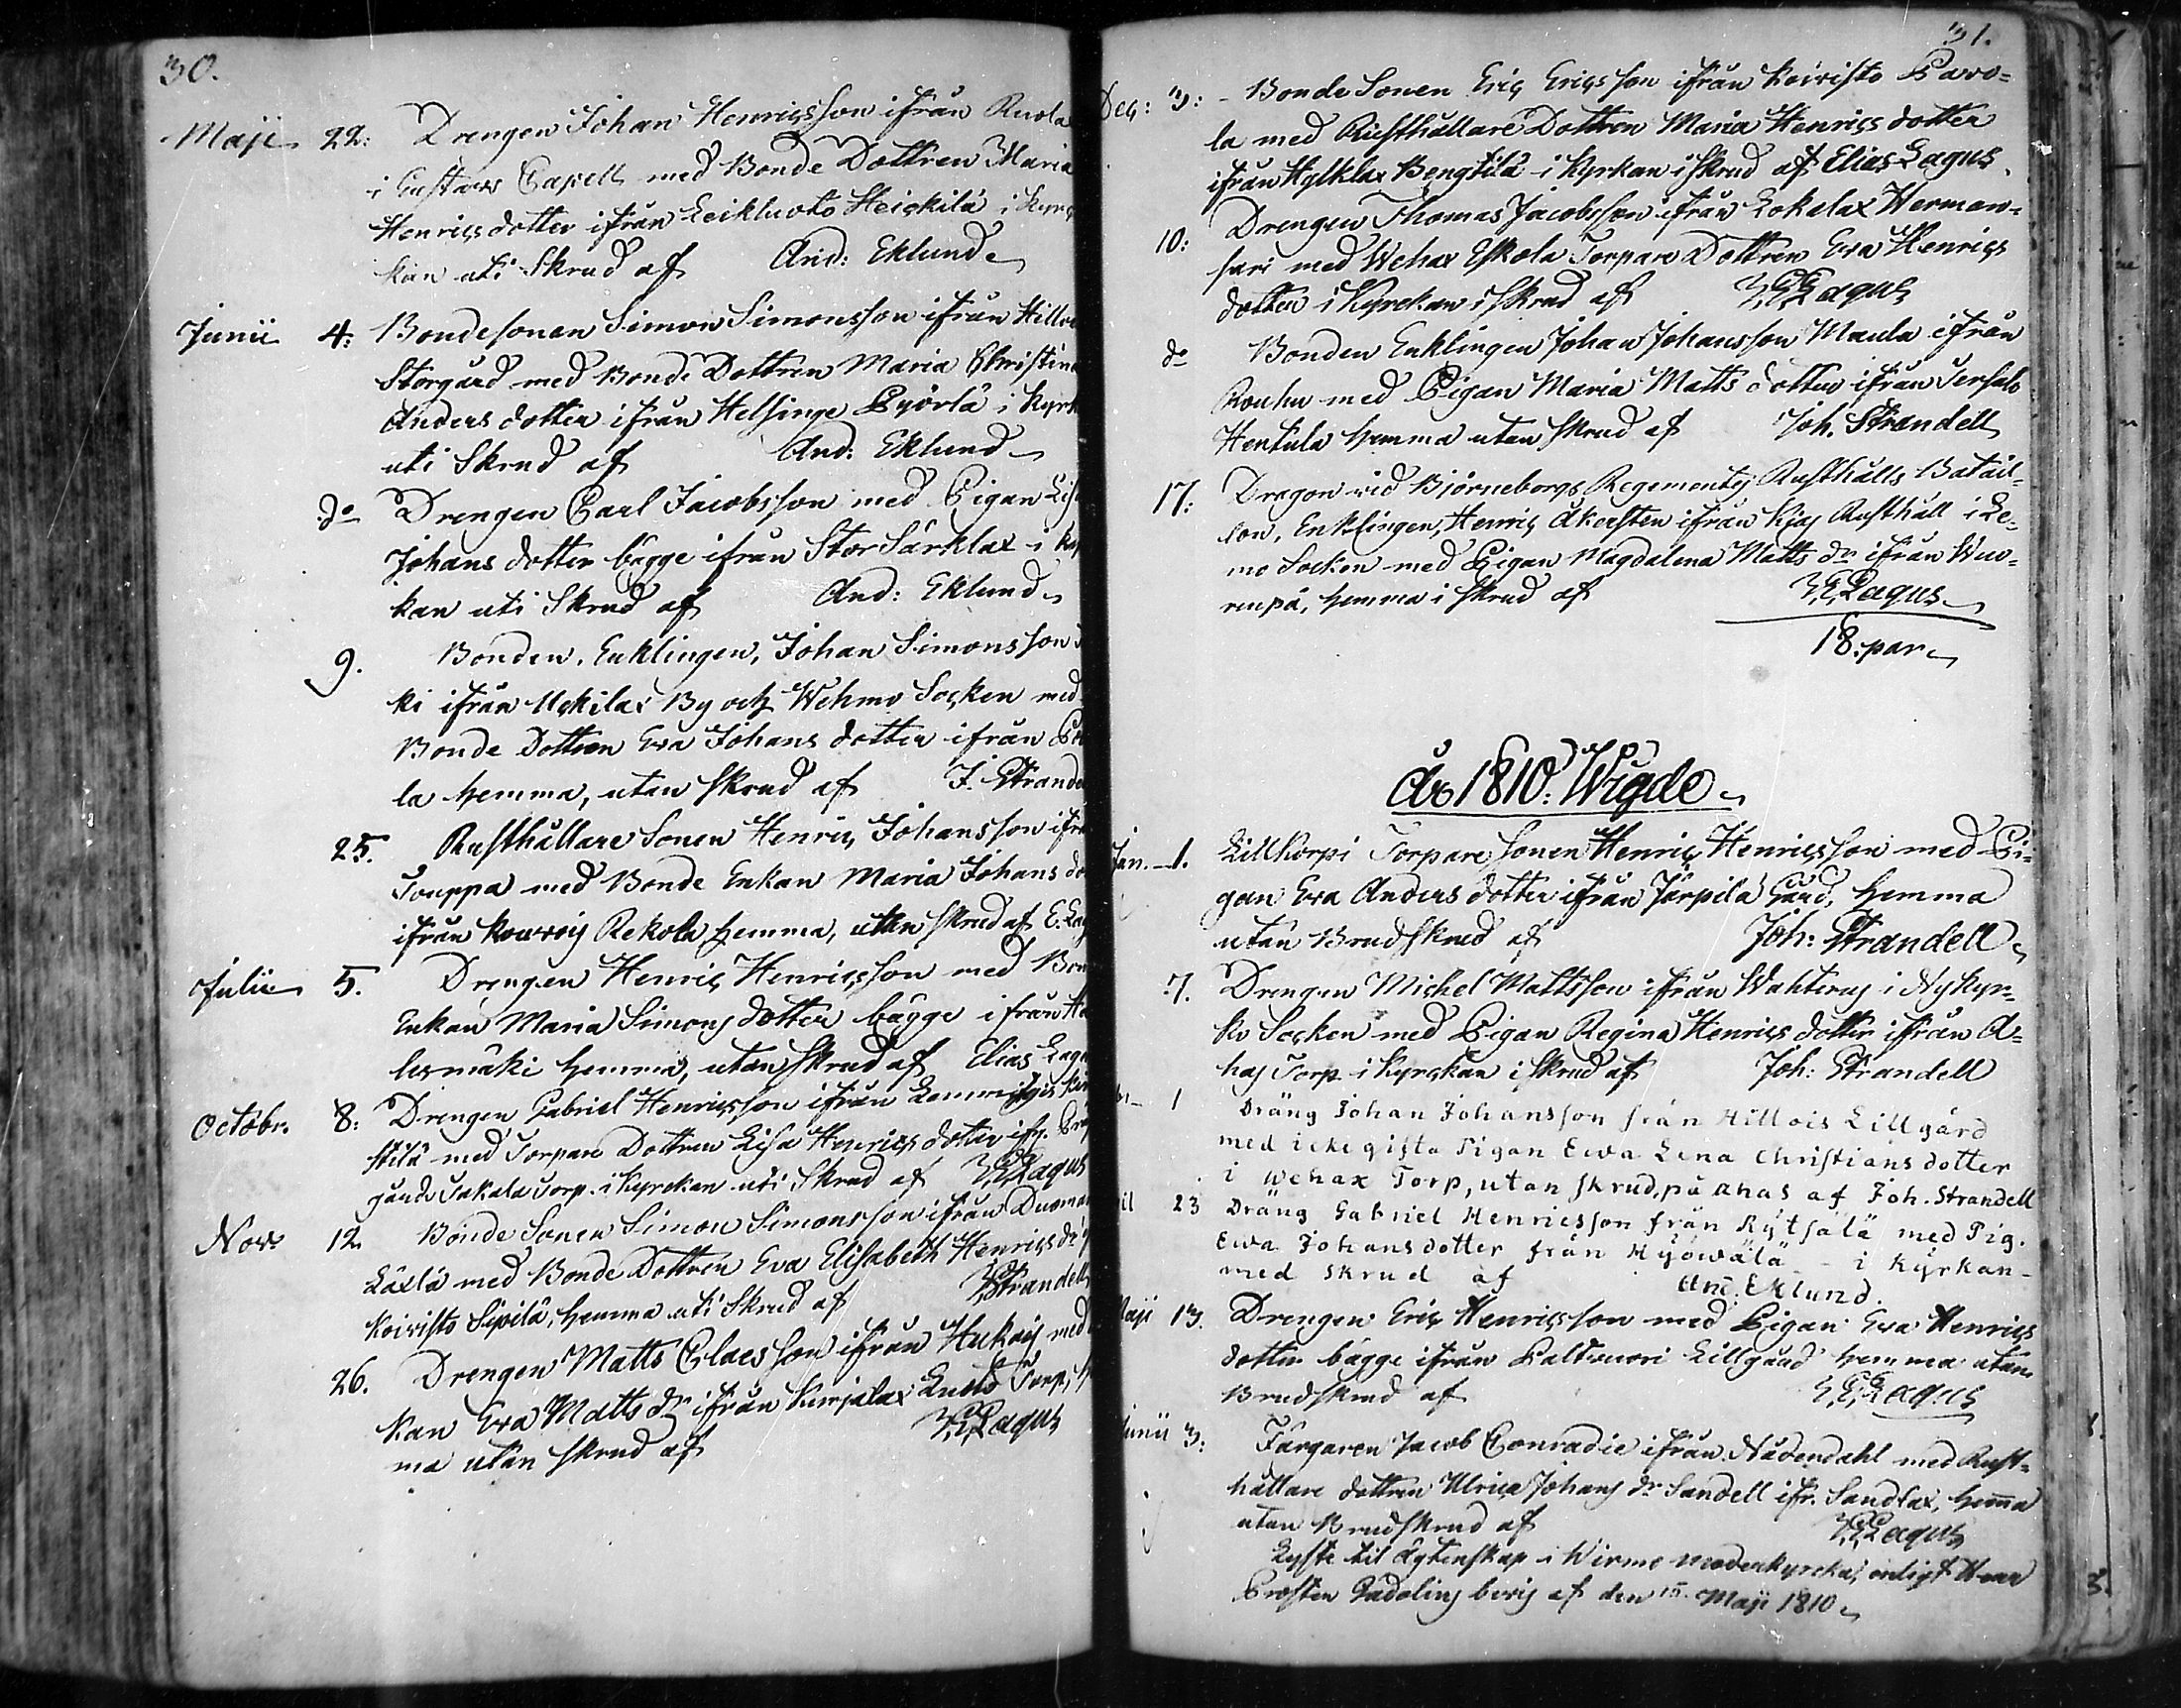 30.
Maji 22: Drengen Johan Henricsson ifrån Ruola
i Gustavs Capell med Bonde Dottren Maria
Henrics dotter ifrån Leikluoto Heickilä i Kyrc
kan uti Skrud af And: Eklund
Junii 4: Bondesonen Simon Simonsson ifrån Hillois
Storgård med Bonde Dottren Maria Christina
Anders dotter ifrån Helsinge Pyörlä i Kyrk
uti Skrud af And: Eklund
do Drengen Carl Jacobsson med Pigan Lisa
Johans dotter bägge ifrån Stor Särklax i Kyr
kan uti Skrud af And: Eklund
9. Bonden, Enklingen, Johan Simonsson
ki ifrån Uckilax By och Wehmo Socken med
Bonde Dottren Eva Johans dotter ifrån
la hemma, utan skrud af J. Strande
25. Rusthållare Sonen Henric Johansson ifrå
Touppa med Bonde Enkan Maria Johans do
ifrån Kourois Rekola hemma, utan skrud af E. Lag
Julii 5. Drengen Henric Henricsson med Bon
Enkan Maria Simons dotter bägge ifrån
lusmäki hemma, utan Skrud af Elias Lagu
Octobr. 8: Drengen Gabriel Henricsson ifrån
stilä med Torpare Dottren Lisa Henrics dotter ifr.
gårds Takala Torp. i Kyrckan uti Skrud af E Lagus
Nov. 12 Bonde Sonen Simon Simonsson ifrån
Läxlä med Bonde Dottren Eva Elisabeth Henrics dr
Koivisto Sipilä, hemma uti Skrud af Strandell
26. Drengen Matts Claesson ifrån Hukais med
kan Eva Matts dr ifrån Kurjalax Torp,
ma utan skrud af E Lagus
31.
Dec: 3: - Bonde Sonen Eric Ericsson ifrån Koivisto Pavo-
la med Rusthållare Dottren Maria Henrics dotter
ifrån Hylklax Bengtilä i Kyrkan i skrud af Elias Lagus.
10: Drengen Thomas Jacobsson ifrån Lokalax Herman-
sari med Wehax Eskola Torpare Dottren Eva Henrics
dotter i Kyrckan i skrud af E Lagus
do Bonden Enklingen Johan Johansson Maula ifrån
Rouhu med Pigan Maria Matts dotter ifrån Sersalo
Hentula hemma utan skrud af Joh. Strandell
17: Dragon vid Björneborgs Regementes Rusthålls Batail-
lon, Enklingen, Henric Åkersten ifrån Kjas Rusthåll i Le-
mo Socken med Pigan Magdalena Matts dr ifrån Wuo-
renpä, hemma i skrud af E Lagus
18. par
År 1810. Wigde
Jan. 1. Lillkorpi Torpare Sonen Henric Henricsson med Pi-
gan Eva Anders dotter ifrån Järpilä Gård, hemma
utan Brudskrud af Joh: Strandell
7. Drengen Michel Mattsson ifrån Wahterus i Nykyr-
ko Socken med Pigan Regina Henrics dotter ifrån A-
has Torp i Kyrckan i skrud af Joh: Strandell
1 Dräng Johan Johansson från Hillois Lillgård
med icke gifta Pigan Ewa Lena Christians dotter
i Wehax Torp, utan skrud, på Ahas af Joh. Strandell
il 23 Dräng Gabriel Henricsson från Kytsalä med Pig.
Ewa Johansdotter från Hyöwälä - i Kyrkan -
med Skrud af And. Eklund.
Maji 13. Drengen Eric Henricsson med Pigan Eva Henrics
dotter bägge ifrån Paltvuori Lillgård hemma utan
Brudskrud af E Lagus
Junii 3: Färgaren Jacob Conradie ifrån Nådendahl med Rust-
hållare dottren Ulrica Johans dr Sandell ifr. Sandlax, hemma
utan Brudskrud af E Lagus
Lyste til Äktenskap i Wirmo Moderkyrcka, enligt Herr
Prosten Gadolins bevis af den 15. Maji 1810